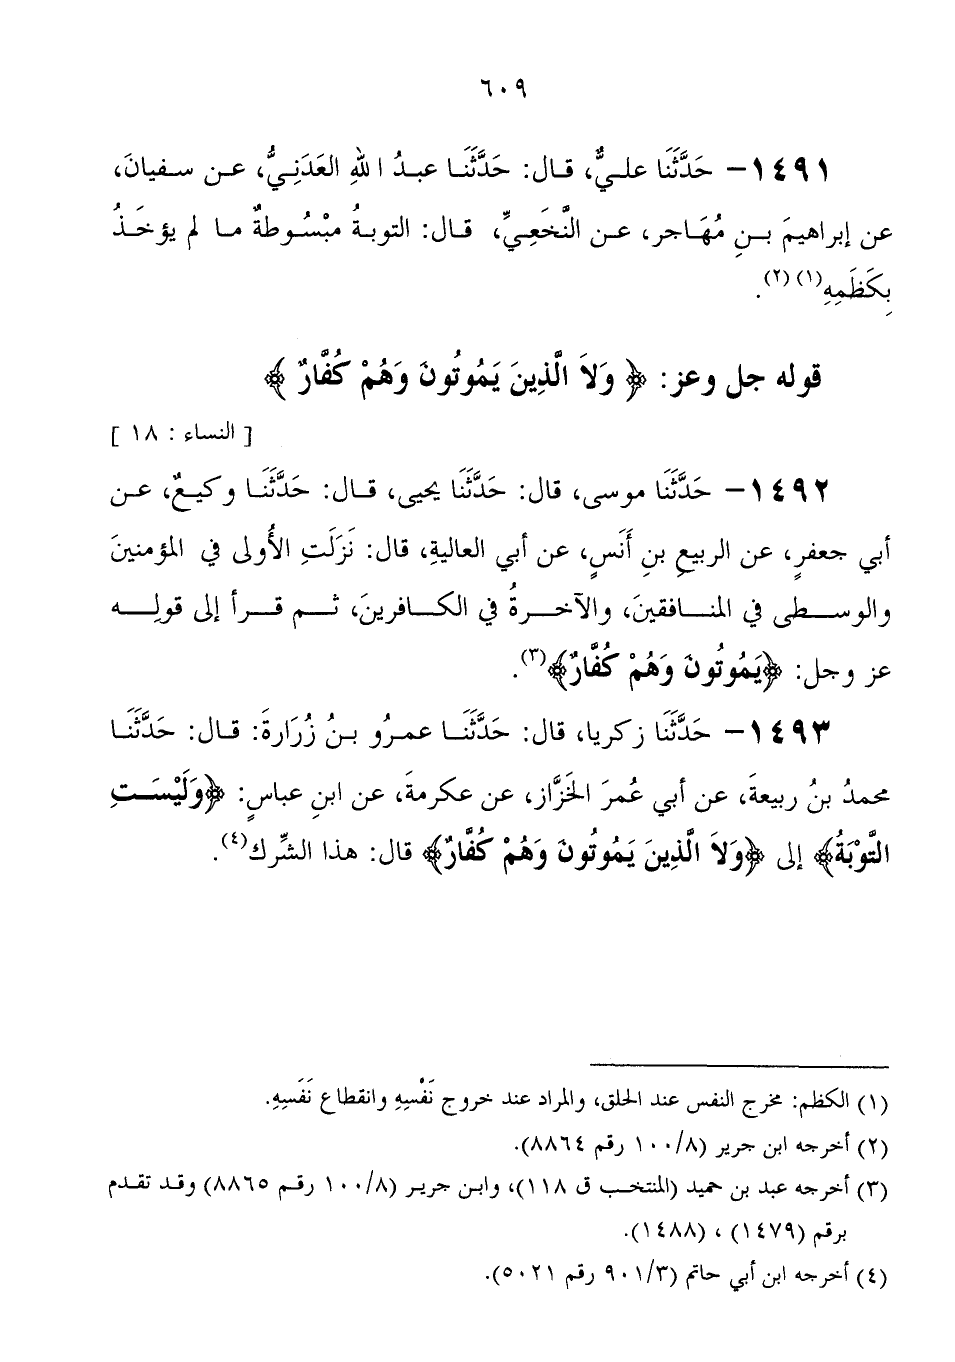 ٦٠٩
١٤٩١- حَدَّثَنَا عليٌّ، قال: حَدَّثَنَا عبدُ اللهِ العَدَنِيُّ، عن سفيانَ،
عن إبراهيمَ بنِ مُهَاجرٍ، عن النَّخَعِيِّ، قال: التوبةُ مبْسُوطةٌ ما لم يؤخَذُ
بِكَظَمِهِ(١)(٢).
قوله جل وعز: ﴿ وَلاَ الَّذِينَ يَمُوتُونَ وَهُمْ كُفَّارٌ ﴾
[ النساء : ١٨ ]
١٤٩٢- حَدَّثَنَا موسى، قال: حَدَّثَنَا يحيى، قال: حَدَّثَنَا وكيعٌ، عن
أبي جعفرٍ، عن الربيعِ بنِ أَنَسٍ، عن أبي العاليةِ، قال: نَزَلَتِ الأُولى في المؤمنينَ
والوسطى في المنافقينَ، والآخرةُ في الكافرينَ، ثم قرأ إلى قولِه
عز وجل: ﴿يَمُوتُونَ وَهُمْ كُفَّارٌ﴾(٣).
١٤٩٣- حَدَّثَنَا زكريا، قال: حَدَّثَنَا عمرُو بنُ زُرَارةَ: قال: حَدَّثَنَا
محمدُ بنُ ربيعةَ، عن أبي عُمرَ الخَزَّاز، عن عكرمةَ، عن ابنِ عباسٍ: ﴿وَلَيْسَتِ
التَّوْبَةُ﴾ إلى ﴿وَلاَ الَّذِينَ يَمُوتُونَ وَهُمْ كُفَّارٌ﴾ قال: هذا الشِّرك(٤).
(١) الكظم: مخرج النفس عند الحلق، والمراد عند خروج نَفْسِهِ وانقطاع نَفَسِهِ.
(٢) أخرجه ابن جرير (٨/١٠٠ رقم ٨٨٦٤).
(٣) أخرجه عبد بن حميد (المنتخب ق ١١٨)، وابن جرير (٨/١٠٠ رقم ٨٨٦٥) وقد تقدم
برقم (١٤٧٩) ، (١٤٨٨).
(٤) أخرجه ابن أبي حاتم (٣/٩٠١ رقم ٥٠٢١).